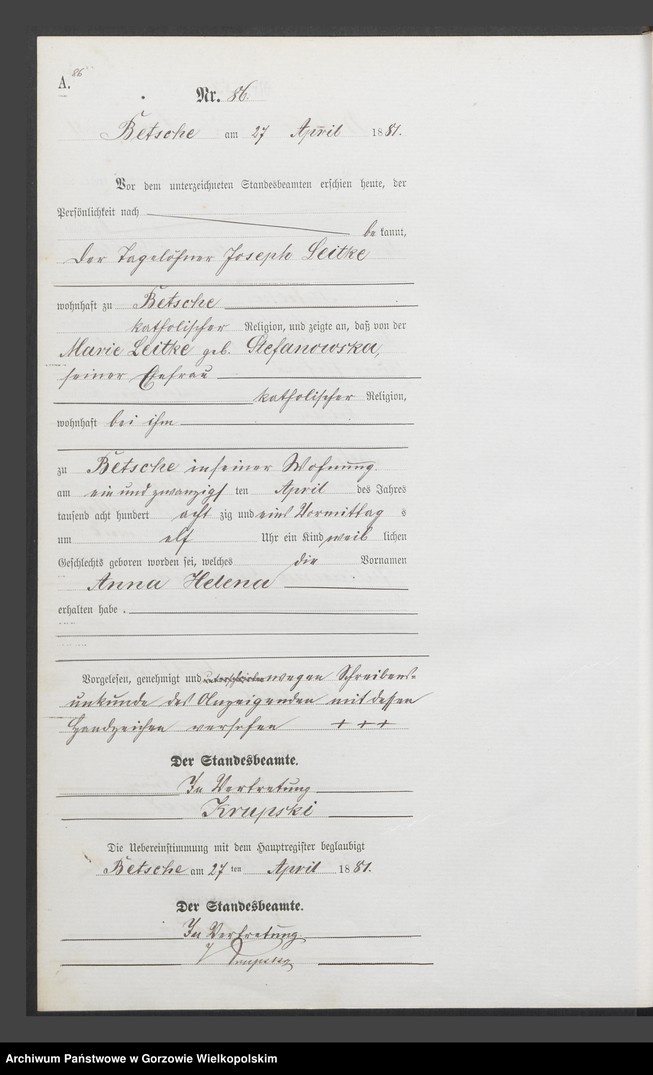 A. 86
Nr. 86.
Betsche am 27 April 1881.
Vor dem unterzeichneten Standesbeamten erschien heute, der
Persönlichkeit nach
be kannt,
der Tagelöhner Joseph Leitke
wohnhaft zu Betsche
katholischer Religion, und zeigte an, daß von der
Marie Leitke geb. Stefanowska,
seiner Ehefrau
katholischer Religion,
wohnhaft bei ihm
zu Betsche in seiner Wohnung
am ein und zwanzigs ten April des Jahres
tausend acht hundert acht zig und eins Vormittag s
um elf Uhr ein Kind weib lichen
Geschlechts geboren worden sei, welches die Vornamen
Anna Helena
erhalten habe.
Vorgelesen, genehmigt und unterschrieben wegen Schreibens-
unkunde des Anzeigenden mit dessen
Handzeichen versehen + + +
Der Standesbeamte.
In Vertretung
Krupski
Die Uebereinstimmung mit dem Hauptregister beglaubigt
Betsche am 27 ten April 1881.
Der Standesbeamte.
In Vertretung
Krupski
Archiwum Państwowe w Gorzowie Wielkopolskim